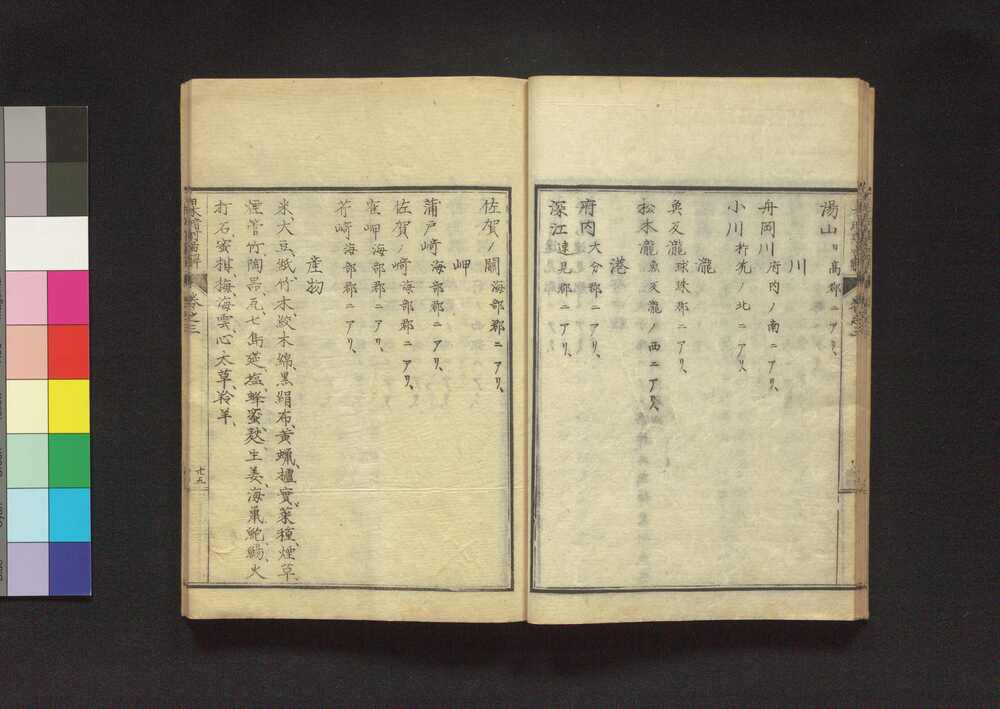 湯山日高郡ニアリ、
川
舟岡川府内ノ南ニアリ、
小川杵筑ノ北ニアリ、
瀧
魚返瀧球珠郡ニアリ、
松木瀧魚返瀧ノ西ニアリ、
港
府内大分郡ニアリ、
深江速見郡ニアリ、
佐賀ノ關海部郡ニアリ、
岬
蒲戸崎海部郡ニアリ、
佐賀ノ崎海部郡ニアリ、
窪岬海部郡ニアリ、
芹崎海部郡ニアリ、
産物
米、大豆、紙、竹、木、絞木綿、黒絹、布、黄蝋、櫨實、菜種、煙草、
煙管竹、陶器、瓦、七島莚、塩、蜂蜜、生姜、海鼠、鮑、鯣、火
打石、蜜柑、梅、海雲、心太草、羚羊、
卷之三
廿五